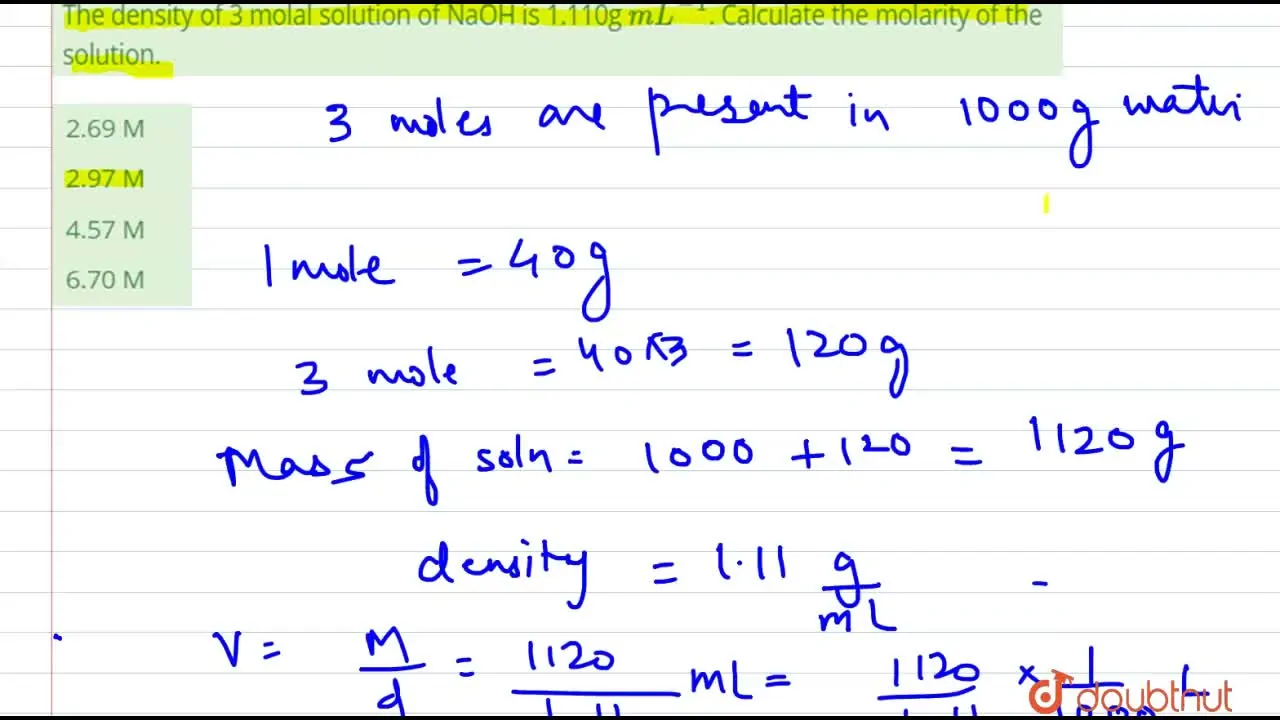 The density of 3 molal solution of NaOH is 1.110g mL⁻¹. Calculate the molarity of the
solution.
2.69 M
2.97 M
4.57 M
6.70 M
3 moles are present in 1000g water
1 mole = 40g
3 mole = 40x3 = 120g
Mass of soln = 1000 + 120 = 1120g
density = 1.11 g/mL =
V = M/d = 1120/1.11 mL = 1120/1.11 x 1/1000 L
doubtnut